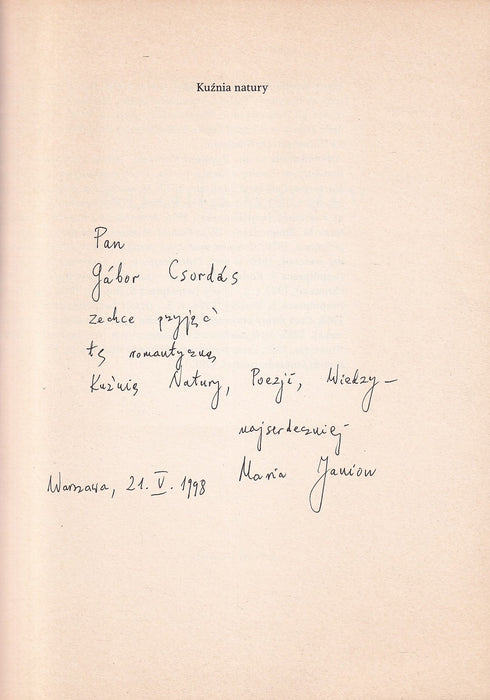 Kuźnia natury
Pan
Gábor Csordás
zechce przyjąć
tę romantyczną
Kuźnię Natury, Poezji, Wiedzy –
najserdeczniej
Maria Janion
Warszawa, 21. V. 1998